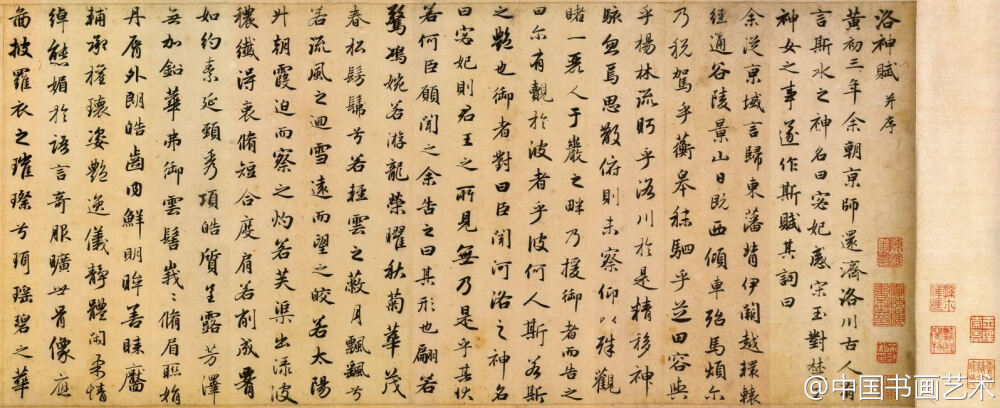 洛神賦 并序
黄初三年余朝京師還濟洛川古人有
言斯水之神名曰宓妃感宋玉對楚
神女之事遂作斯賦其詞曰
余從京域言歸東藩背伊闕越轘轅
經通谷陵景山日既西傾車殆馬煩尔
乃税駕乎蘅皋秣駟乎芝田容與
乎楊林流眄乎洛川於是精移神
駭忽焉思散俯則未察仰以殊觀
睹一麗人于巖之畔乃援御者而告之
曰尔有覿於彼者乎彼何人斯若斯
之艷也御者對曰臣聞河洛之神名
曰宓妃則君王之所見無乃是乎其狀
若何臣願聞之余告之曰其形也翩若
驚鴻婉若游龍榮曜秋菊華茂
春松髣髴兮若輕雲之蔽月飄飄兮
若流風之迴雪遠而望之皎若太陽
升朝霞迫而察之灼若芙蕖出淥波
穠纖得衷脩短合度肩若削成腰
如約素延頸秀項皓質呈露芳澤
無加鉛華弗御雲髻峩〻脩眉聯娟
丹脣外朗皓齒内鮮明眸善睞靨
輔承權瓌姿艷逸儀靜體閑柔情
綽態媚於語言奇服曠世骨像應
圖披羅衣之璀璨兮珥瑤碧之華
@中国书画艺术